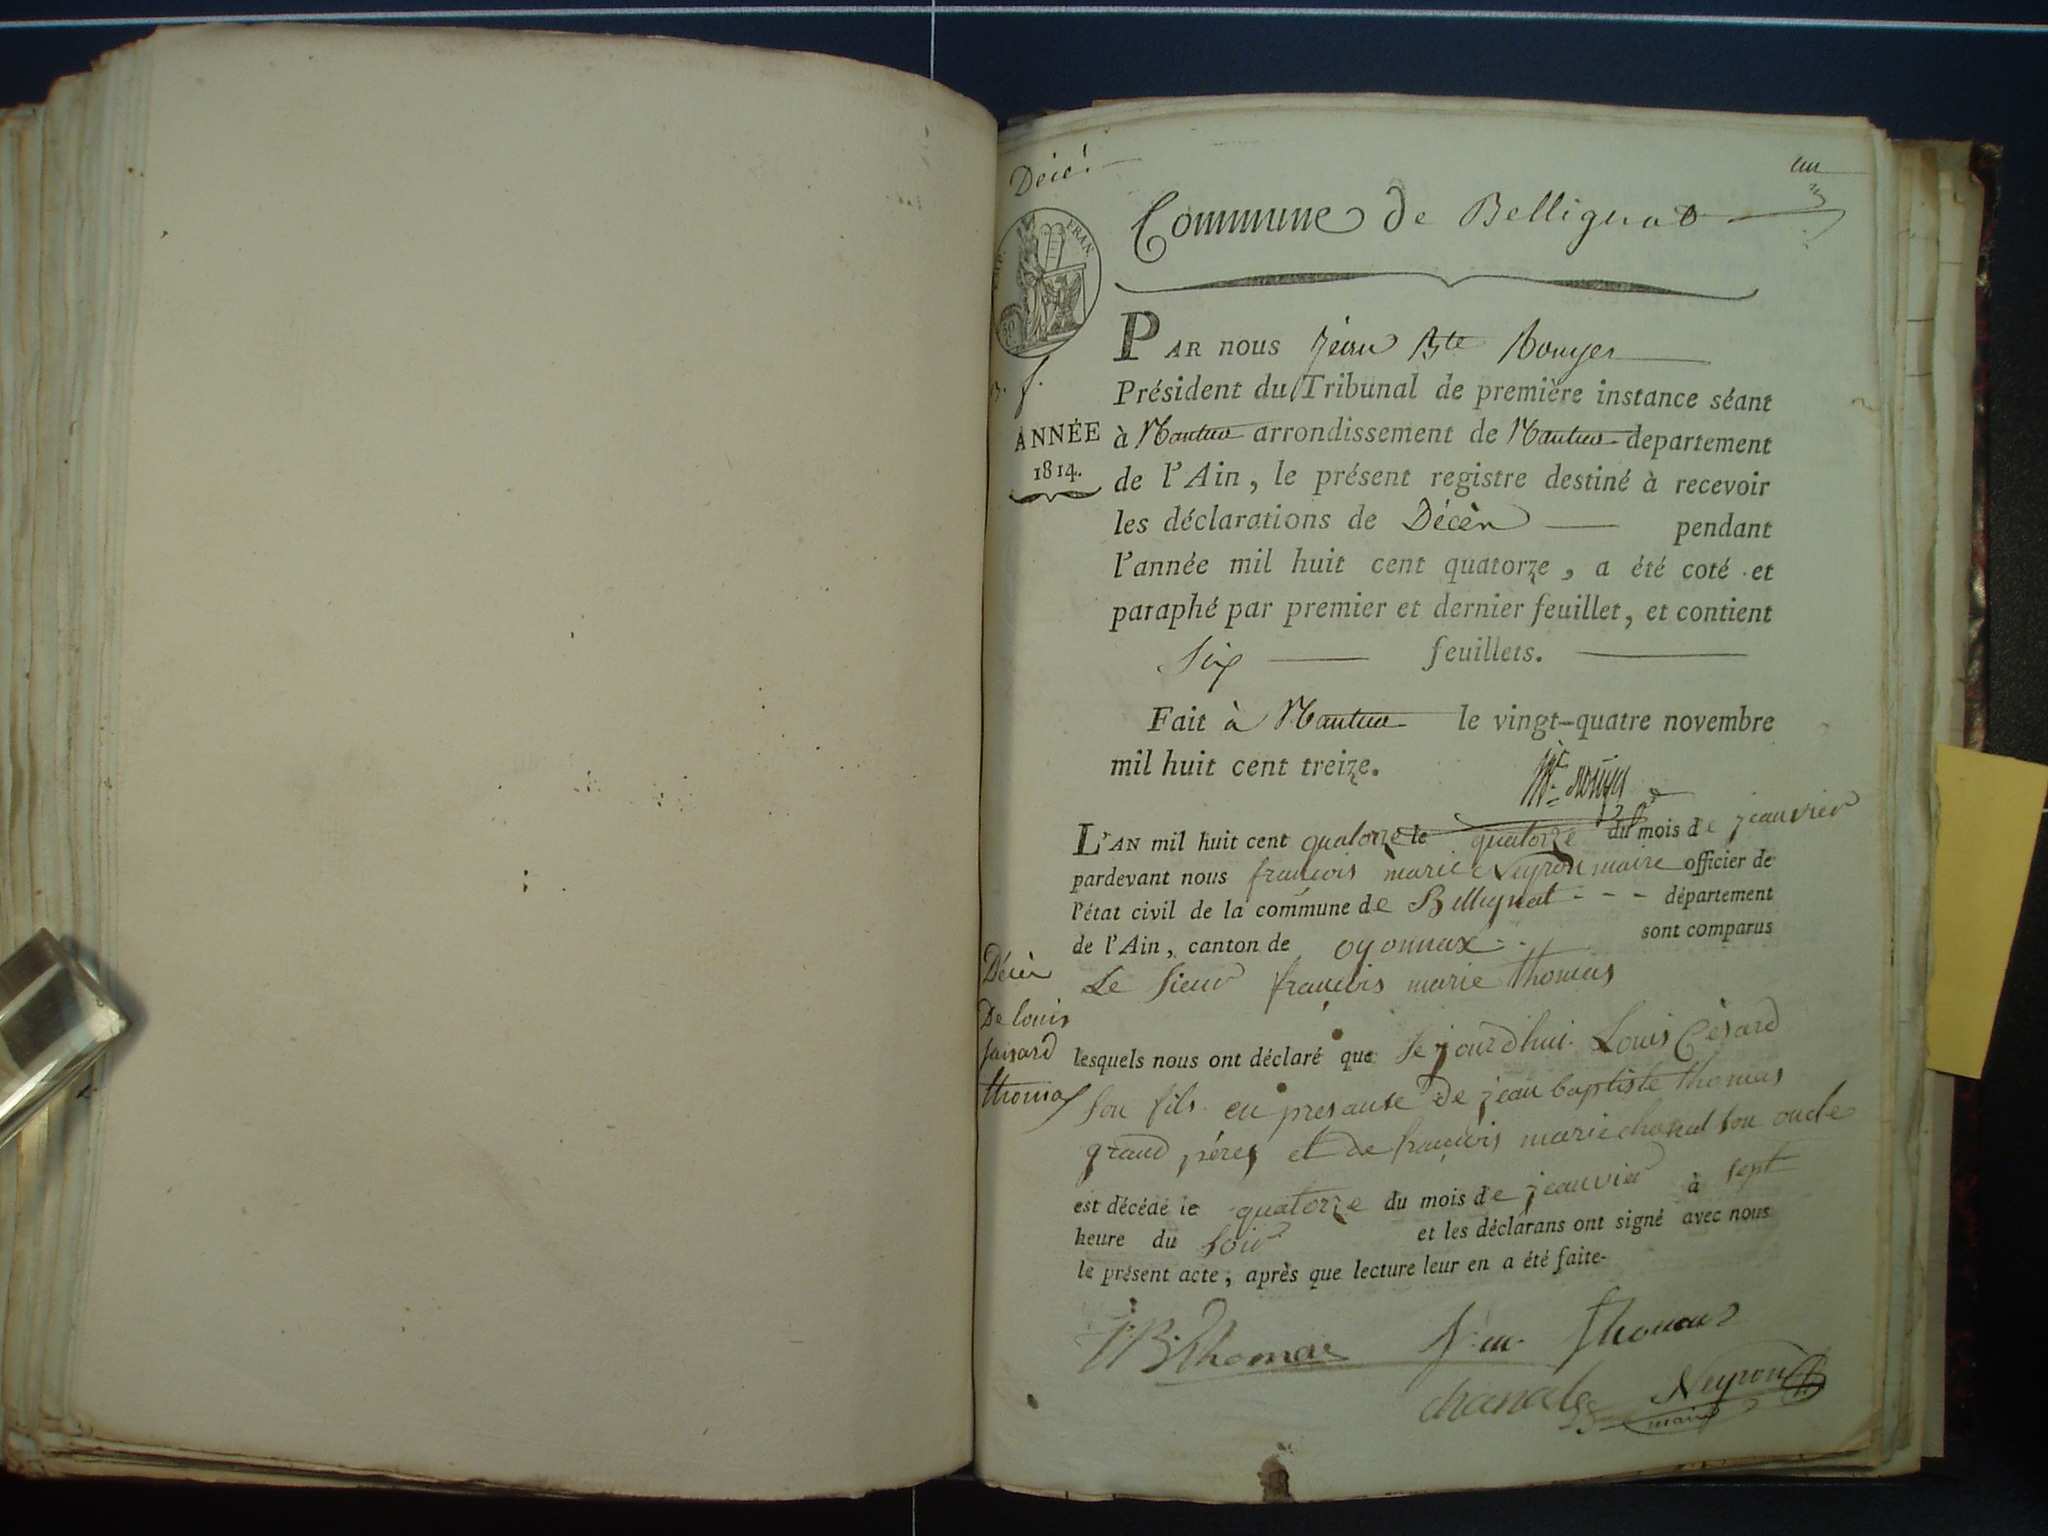 Décè
un
Commune de Bellignat
FRAN.
PAR nous Jean Bte Rouyer
Président du Tribunal de première instance séant
ANNÉE
1814.
à Nantua arrondissement de Nantua departement
de l'Ain, le présent registre destiné à recevoir
les déclarations de Décès pendant
l'année mil huit cent quatorze, a été coté et
paraphé par premier et dernier feuillet, et contient
Six feuillets.
Fait à Nantua le vingt-quatre novembre
mil huit cent treize.
L'AN mil huit cent quatorze le quatorze du mois de jeanvier
pardevant nous françois marie Neyron maire officier de
l'état civil de la commune de Bellignat - - - département
de l'Ain, canton de oyonnax - - sont comparus
Décès
De louis
saisard
thomas
Le sieur françois marie thomas
lesquels nous ont déclaré que se jourdhui Louis Césard
son fils en presanse de jean baptiste thomas
grand péres et de françois marie chanal son oncle
est décédé le quatorze du mois de jeanvier à sept
heure du soir et les déclarans ont signé avec nous
le présent acte, après que lecture leur en a été faite.
J. B. Thomas f. m. thomas
chanal Neyron
maire